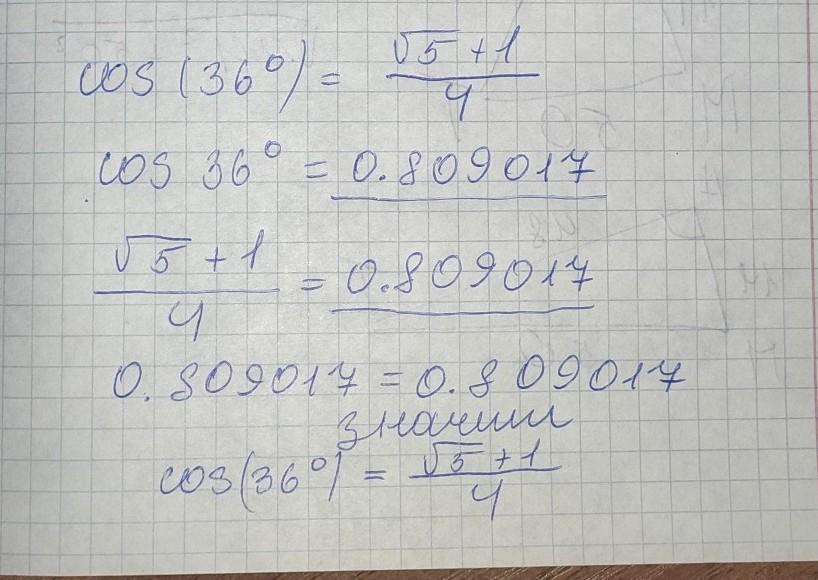 cos (36°) = (√5 + 1)/4
cos 36° = 0.809017
(√5 + 1)/4 = 0.809017
0.809017 = 0.809017
значит
cos(36°) = (√5 + 1)/4